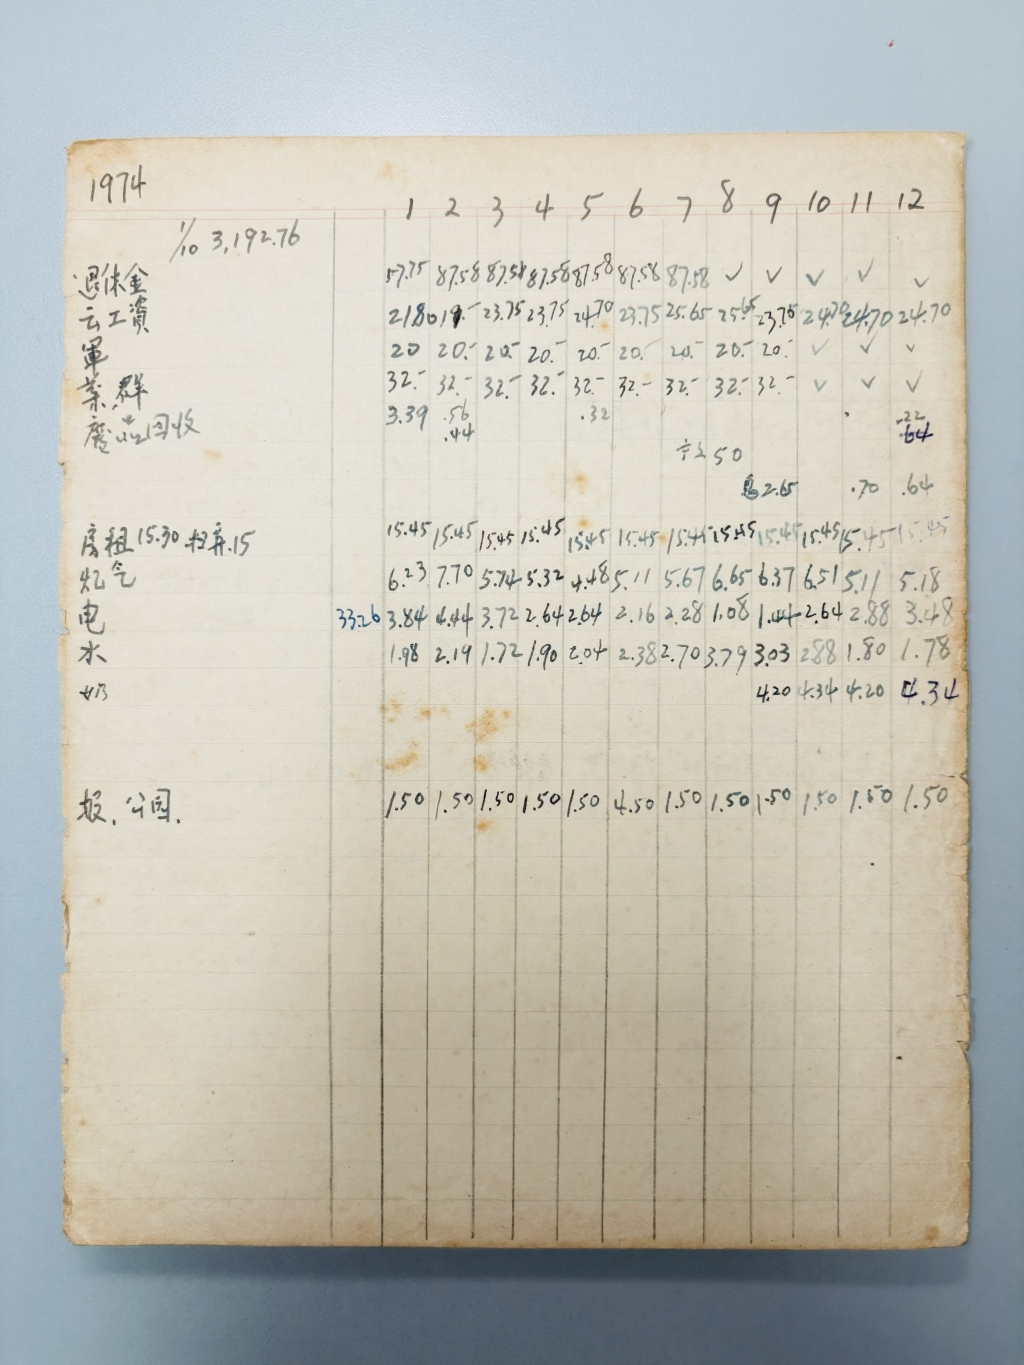 1974
1 2 3 4 5 6 7 8 9 10 11 12
1/10 3,192.76
退休金 57.75 87.58 87.58 87.58 87.58 87.58 87.58 ✓ ✓ ✓ ✓ ✓
云工資 21.80 19.- 23.75 23.75 24.70 23.75 25.65 25.65 23.75 24.70 24.70 24.70
軍 20 20.- 20.- 20.- 20.- 20.- 20.- 20.- 20.- ✓ ✓ ✓
業.群 32.- 32.- 32.- 32.- 32.- 32.- 32.- 32.- 32.- ✓ ✓ ✓
廢品回收 3.39 .56 .32 .22
.44 .64
50
息 2.65 .70 .64
房租 15.30 .15 15.45 15.45 15.45 15.45 15.45 15.45 15.45 15.45 15.45 15.45 15.45 15.45
灶气 6.23 7.70 5.74 5.32 4.48 5.11 5.67 6.65 6.37 6.51 5.11 5.18
电 33.26 3.84 4.44 3.72 2.64 2.64 2.16 2.28 1.08 1.44 2.64 2.88 3.48
水 1.98 2.19 1.72 1.90 2.04 2.38 2.70 3.79 3.03 2.88 1.80 1.78
奶 4.20 4.34 4.20 4.34
报.公园. 1.50 1.50 1.50 1.50 1.50 4.50 1.50 1.50 1.50 1.50 1.50 1.50